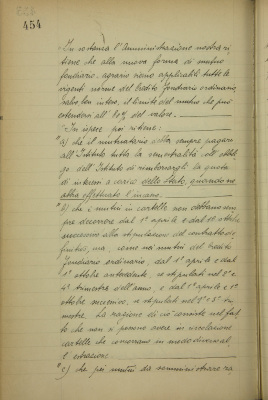 454
In sostanza l'Amministrazione nostra ri
tiene che alla nuova forma di mutuo
fondiario-agrario siano applicabili tutte le
vigenti norme del Credito Fondiario ordinario
salvo, ben inteso, il limite del mutuo che può
estendersi all' 80% del valore.
In ispecie poi ritiene:
"a) che il mutuatario debba sempre pagare
all'Istituto tutta la semestralità, coll'obbli
go dell'Istituto di rimborsargli la quota
di interessi a carico dello Stato, quando ne
abbia effettuato l'incasso.
"b) che i mutui in cartelle non debbano sem
pre decorrere dal 1° aprile e dal 1° ottobre
successivo alla stipulazione del contratto de
finitivo, ma, come nei mutui del Credito
Fondiario ordinario, dal 1° aprile e dal
1° ottobre antecedente, se stipulati nel 2° e
4° trimestre dell'anno, e dal 1° aprile e 1°
ottobre successivo, se stipulati nel 1° e 3° tri
mestre. La ragione di ciò consiste nel fat
to che non si possono avere in circolazione
cartelle che concorrano in modo diverso al
l' estrazioni.
"c) che pei mutui da somministrare ra